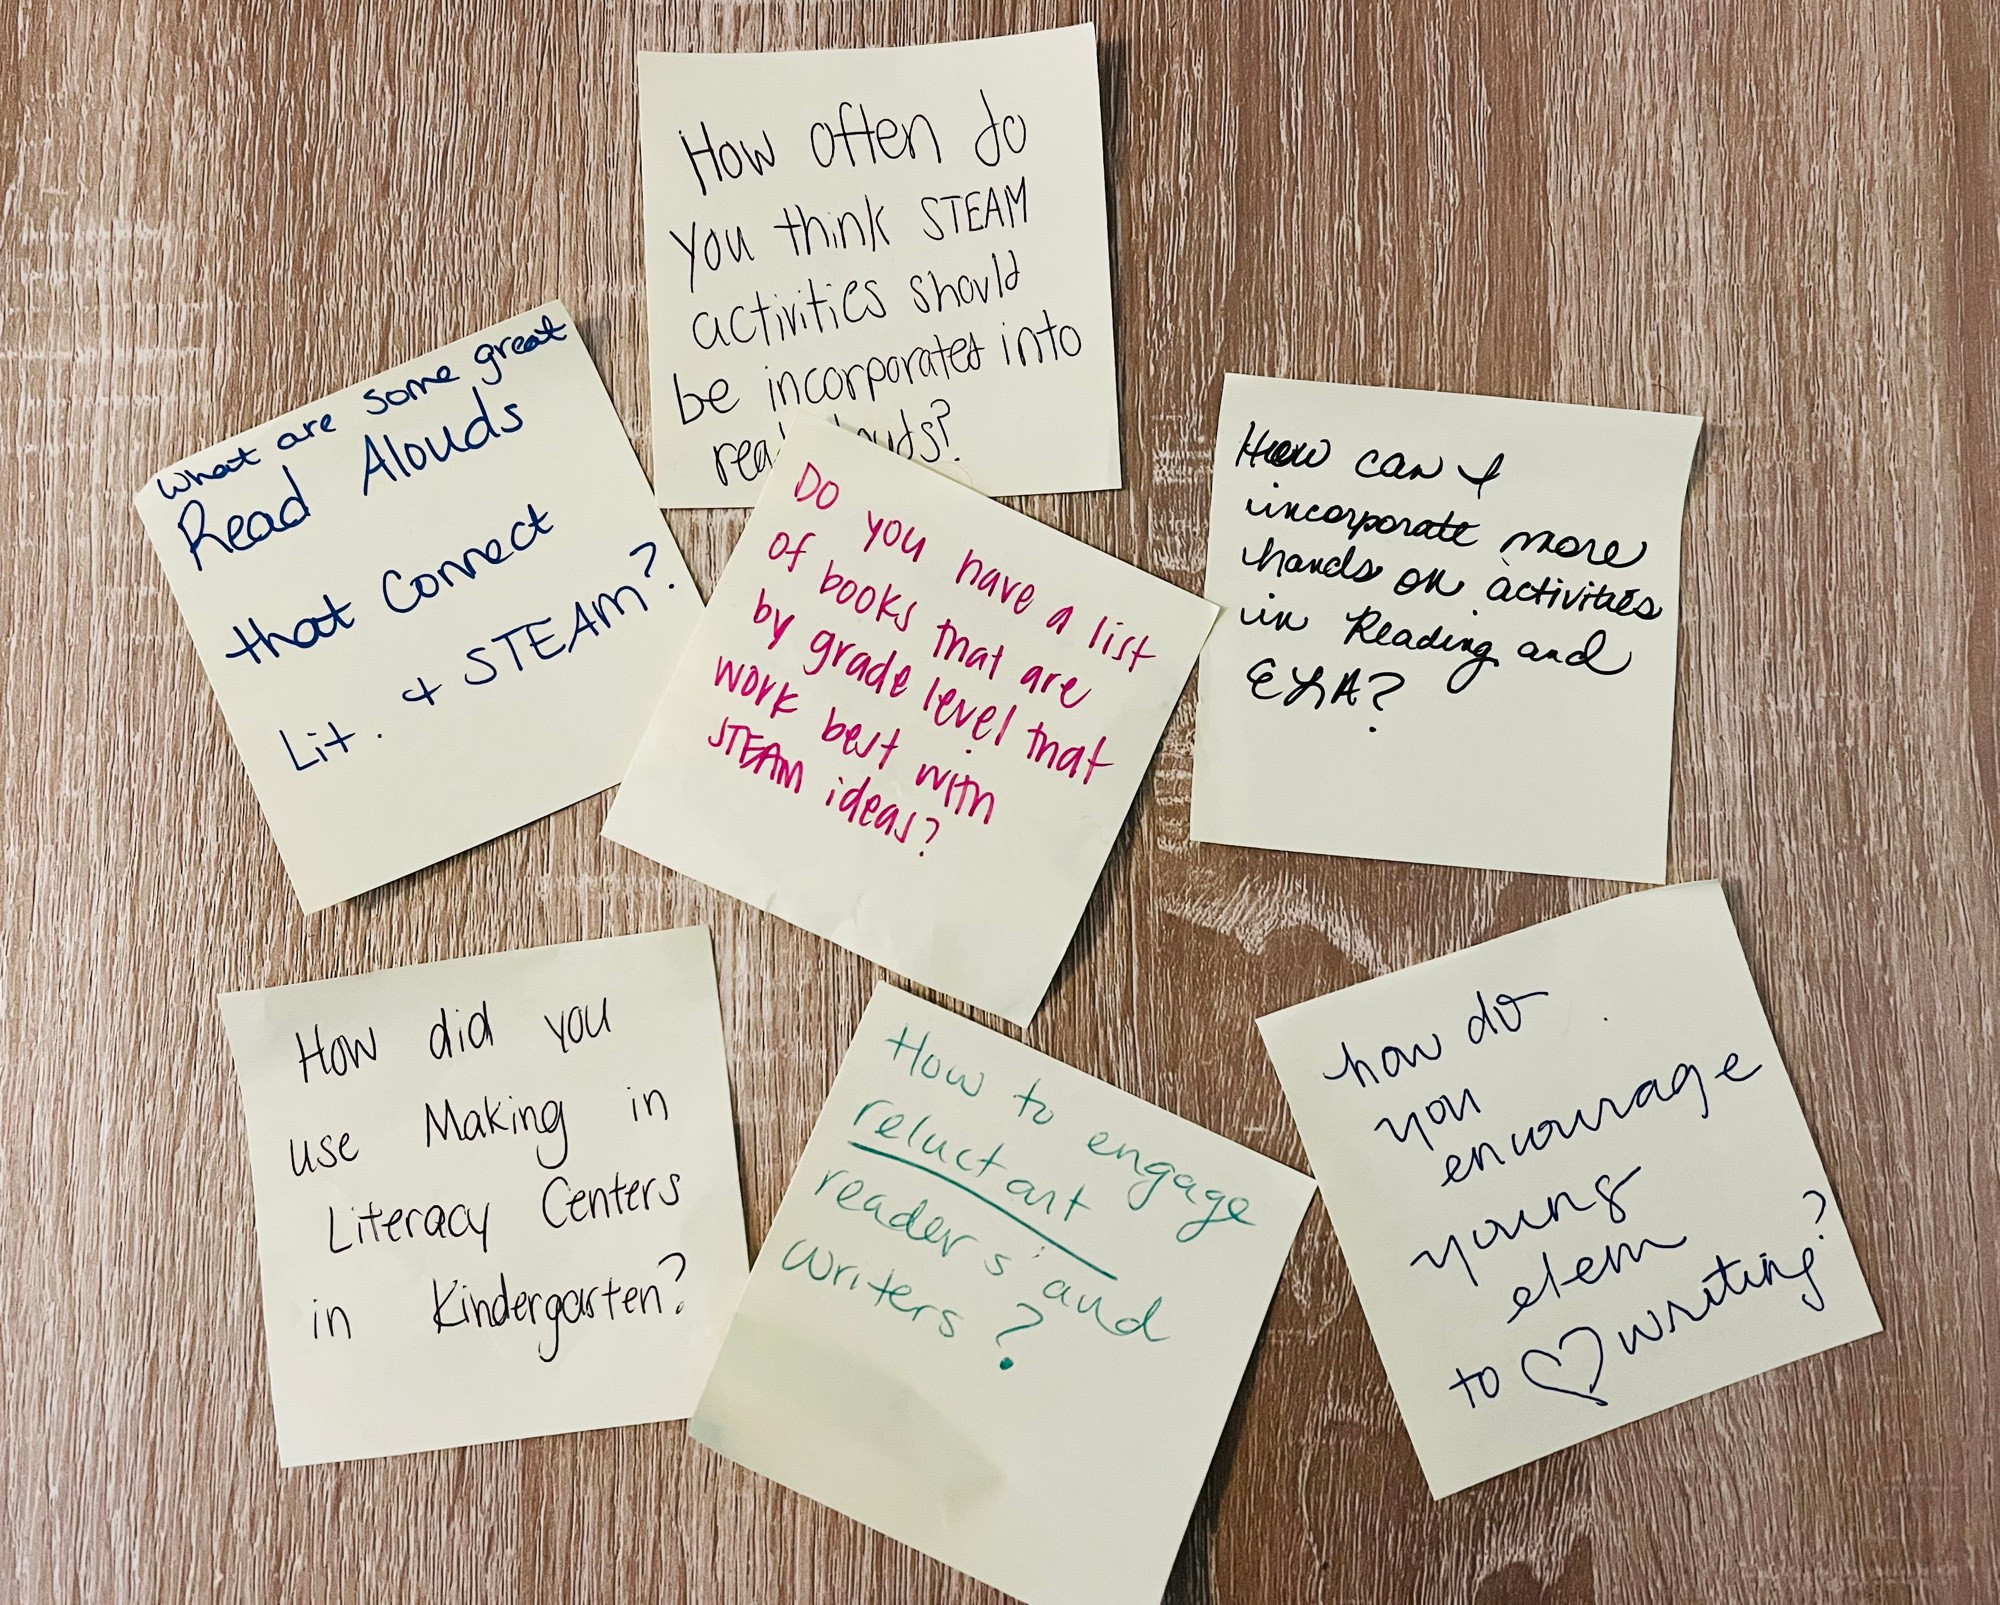 How often do
you think STEAM
activities should
be incorporated into
What are some great
Read Alouds
that Connect
Lit. & STEAM?
Do you have a list
of books that are
by grade level that
work best with
STEAM ideas?
How can I
incorporate more
hands on activities
in Reading and
ELA?
How did you
use Making in
Literacy Centers
in Kindergarten?
How to engage
reluctant
reader's and
writers?
how do
you
encourage
young
elem
to ♡ writing?